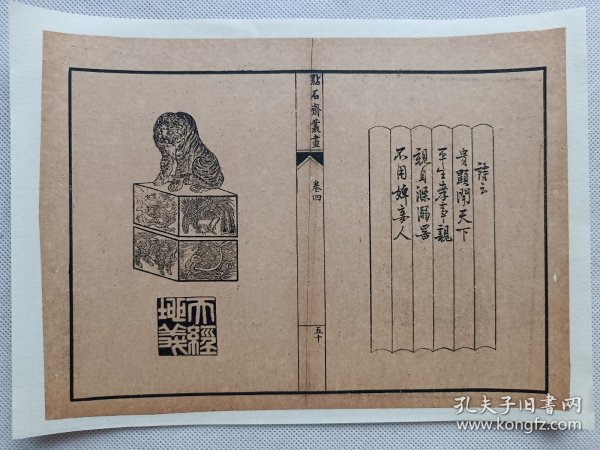 詩云
貴顯聞天下
平生孝事親
親自滌溺器
不用婢妾人
點石齋叢畫
卷四
五十
天經
地義
孔夫子旧书网
www.kongfz.com